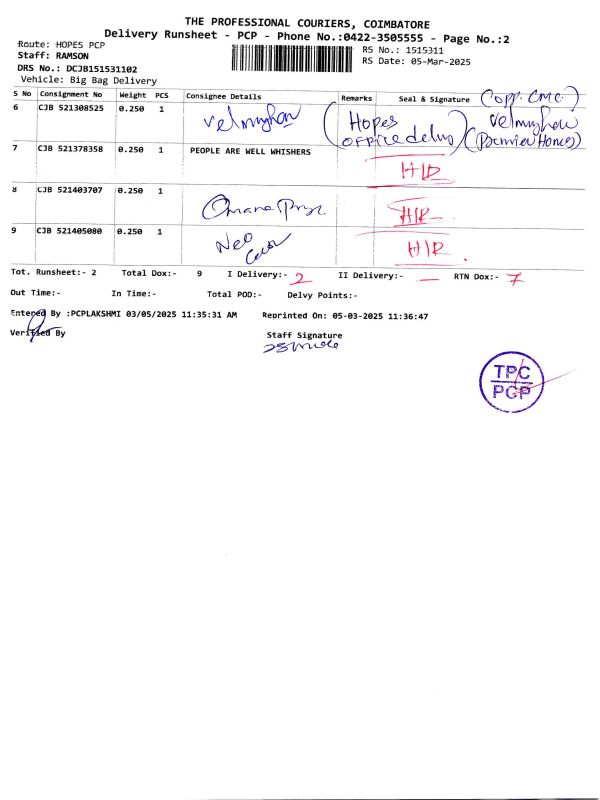 THE PROFESSIONAL COURIERS, COIMBATORE
Delivery Runsheet - PCP - Phone No.:0422-3505555 - Page No.:2
Route: HOPES PCP
RS No.: 1515311
Staff: RAMSON
RS Date: 05-Mar-2025
DRS No.: DCJB151531102
Vehicle: Big Bag Delivery
S No Consignment No Weight PCS Consignee Details Remarks Seal & Signature (opp. CMC.)
6 CJB 521308525 0.250 1 velmughan (Hopes velmughan
OFFICE (Premier Homes)
7 CJB 521378358 0.250 1 PEOPLE ARE WELL WHISHERS
H/D
8 CJB 521403707 0.250 1 H/R
9 CJB 521405080 0.250 1 Neo H/R
Tot. Runsheet:- 2 Total Dox:- 9 I Delivery:- 2 II Delivery:- — RTN Dox:- 7
Out Time:- In Time:- Total POD:- Delvy Points:-
Entered By :PCPLAKSHMI 03/05/2025 11:35:31 AM Reprinted On: 05-03-2025 11:36:47
Verified By Staff Signature
TPC
PCP